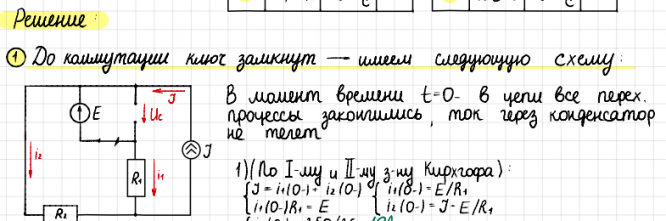 Решение:
1 До коммутации ключ замкнут — имеем следующую схему:
J
E
Uc
i2
R1
i1
J
R2
В момент времени t=0- в цепи все перех.
процессы закончились, ток через конденсатор
не течет
1) (По I-му и II-му з-ну Кирхгофа):
J = i1(0-) + i2(0-) i1(0-) = E/R1
i1(0-)R1 = E i2(0-) = J - E/R1